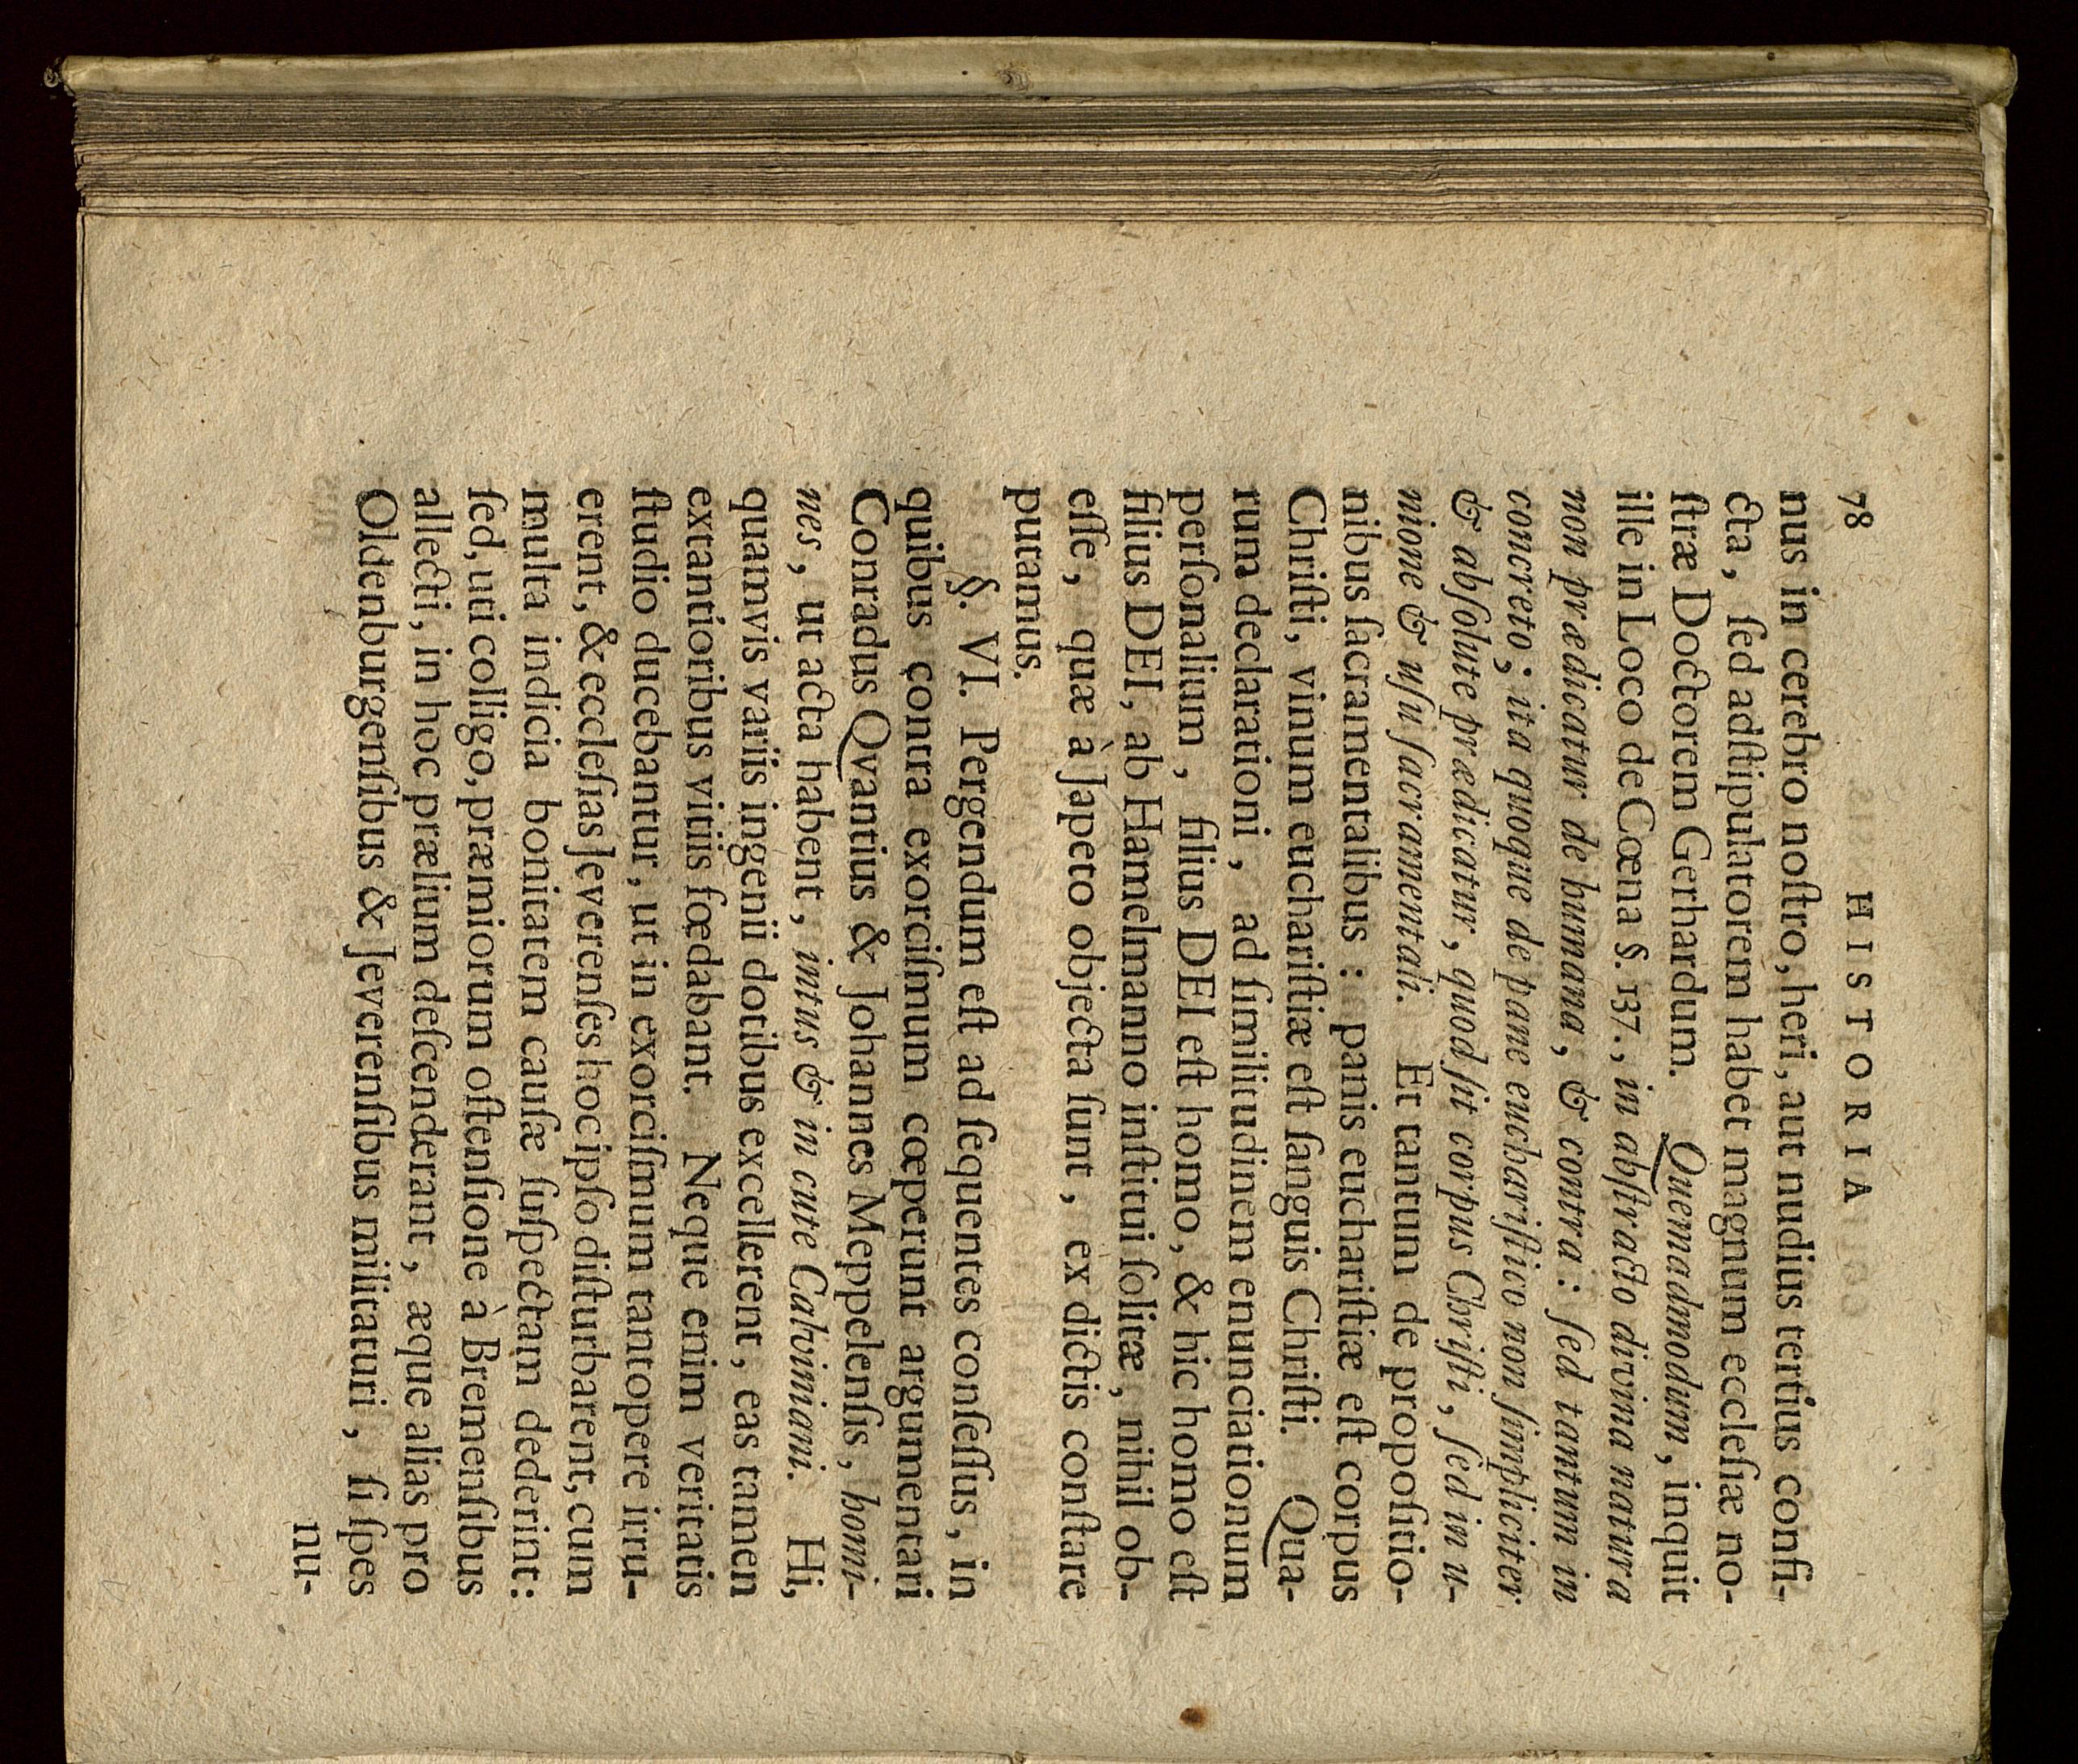 78 HISTORIA
nus in cerebro noſtro, heri, aut nudius tertius confi-
cta, ſed adſtipulatorem habet magnum eccleſiæ no-
ſtræ Doctorem Gerhardum. Quemadmodum, inquit
ille in Loco de Cœna §. 137., in abſtracto divina natura
non prædicatur de humana, & contra: ſed tantum in
concreto; ita quoque de pane euchariſtico non ſimpliciter
& abſolute prædicatur, quod ſit corpus Chriſti, ſed in u-
nione & uſu ſacramentali. Et tantum de propoſitio-
nibus ſacramentalibus: panis euchariſtiæ eſt corpus
Chriſti, vinum euchariſtiæ eſt ſanguis Chriſti. Qua-
rum declarationi, ad ſimilitudinem enunciationum
perſonalium, filius DEI eſt homo, & hic homo eſt
filius DEI, ab Hamelmanno inſtitui ſolitæ, nihil ob-
eſſe, quæ à Japeto objecta ſunt, ex dictis conſtare
putamus.
§. VI. Pergendum eſt ad ſequentes conſeſſus, in
quibus contra exorciſmum cœperunt argumentari
Conradus Qvantius & Johannes Meppelenſis, homi-
nes, ut acta habent, intus & in cute Calviniani. Hi,
quamvis variis ingenii dotibus excellerent, eas tamen
extantioribus vitiis fœdabant. Neque enim veritatis
ſtudio ducebantur, ut in exorciſmum tantopere irru-
erent, & eccleſias Jeverenſes hoc ipſo diſturbarent, cum
multa indicia bonitatem cauſæ ſuſpectam dederint:
ſed, uti colligo, præmiorum oſtenſione à Bremenſibus
allecti, in hoc prælium deſcenderant, æque alias pro
Oldenburgenſibus & Jeverenſibus militaturi, ſi ſpes
nu-